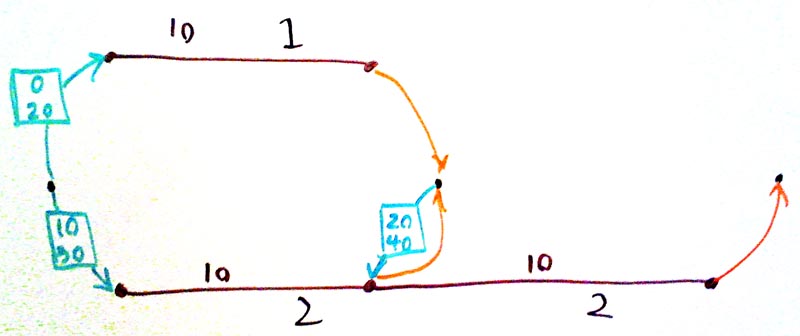 10 1
0
20
10
30
20
40
10 2
10 2